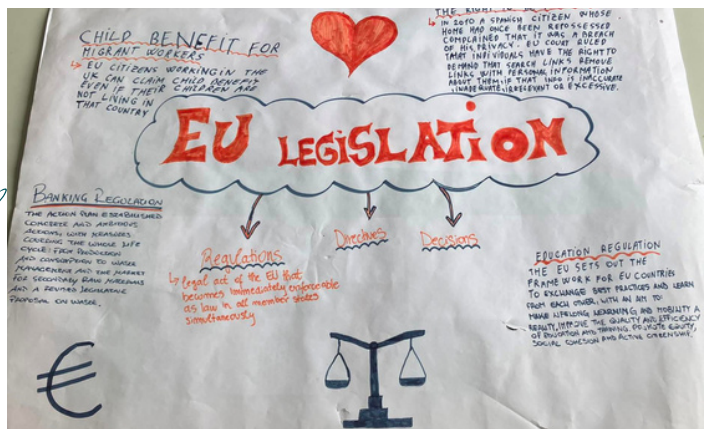 CHILD BENEFIT FOR
MIGRANT WORKERS
EU CITIZENS WORKING IN THE
UK CAN CLAIM CHILD BENEFIT
EVEN IF THEIR CHILDREN ARE
NOT LIVING IN
THAT COUNTRY
THE RIGHT TO
IN 2010 A SPANISH CITIZEN WHOSE
HOME HAD ONCE BEEN REPOSSESSED
COMPLAINED THAT IT WAS A BREACH
OF HIS PRIVACY. EU COURT RULED
THAT INDIVIDUALS HAVE THE RIGHT TO
DEMAND THAT SEARCH LINKS REMOVE
LINKS WITH PERSONAL INFORMATION
ABOUT THEM, IF THAT INFO IS INACCURATE
INADEQUATE, IRRELEVANT OR EXCESSIVE.
EU LEGISLATION
BANKING REGULATION
THE ACTION PLAN ESTABLISHED
CONCRETE AND AMBITIOUS
ACTIONS, WITH MEASURES
COVERING THE WHOLE LIFE
CYCLE: FROM PRODUCTION
AND CONSUMPTION TO WASTE
MANAGEMENT AND THE MARKET
FOR SECONDARY RAW MATERIALS
AND A REVISED LEGISLATIVE
PROPOSAL ON WASTE.
Regulations
legal act of the EU that
becomes immediately enforceable
as law in all member states
simultaneously
Directives
Decisions
EDUCATION REGULATION
THE EU SETS OUT THE
FRAMEWORK FOR EU COUNTRIES
TO EXCHANGE BEST PRACTICES AND LEARN
FROM EACH OTHER, WITH AN AIM TO
MAKE LIFELONG LEARNING AND MOBILITY A
REALITY, IMPROVE THE QUALITY AND EFFICIENCY
OF EDUCATION AND TRAINING, PROMOTE EQUITY,
SOCIAL COHESION AND ACTIVE CITIZENSHIP.
€